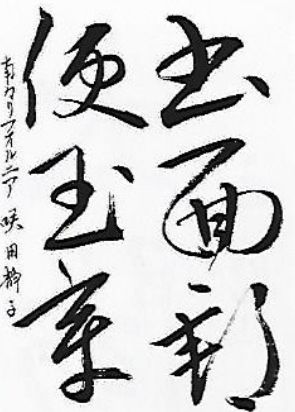 書面郵
便玉章
南カリフオルニア 咲田静子